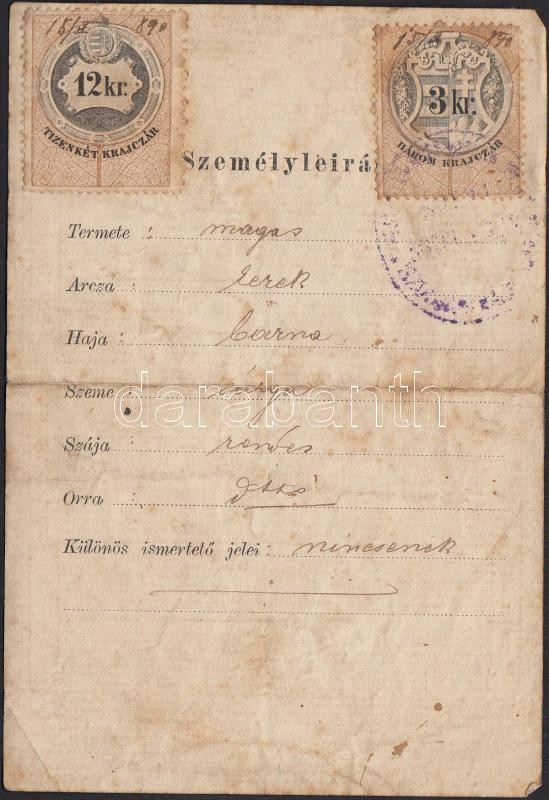 15/3 890
12 kr.
TIZENKÉT KRAJCZÁR
890
3 kr.
HÁROM KRAJCZÁR
Személyleirá
Termete : magas
Arcza : kerek
Haja : barna
Szeme : sárga
Szája : rendes
Orra : dtto
Különös ismertető jelei : nincsenek
darabanth